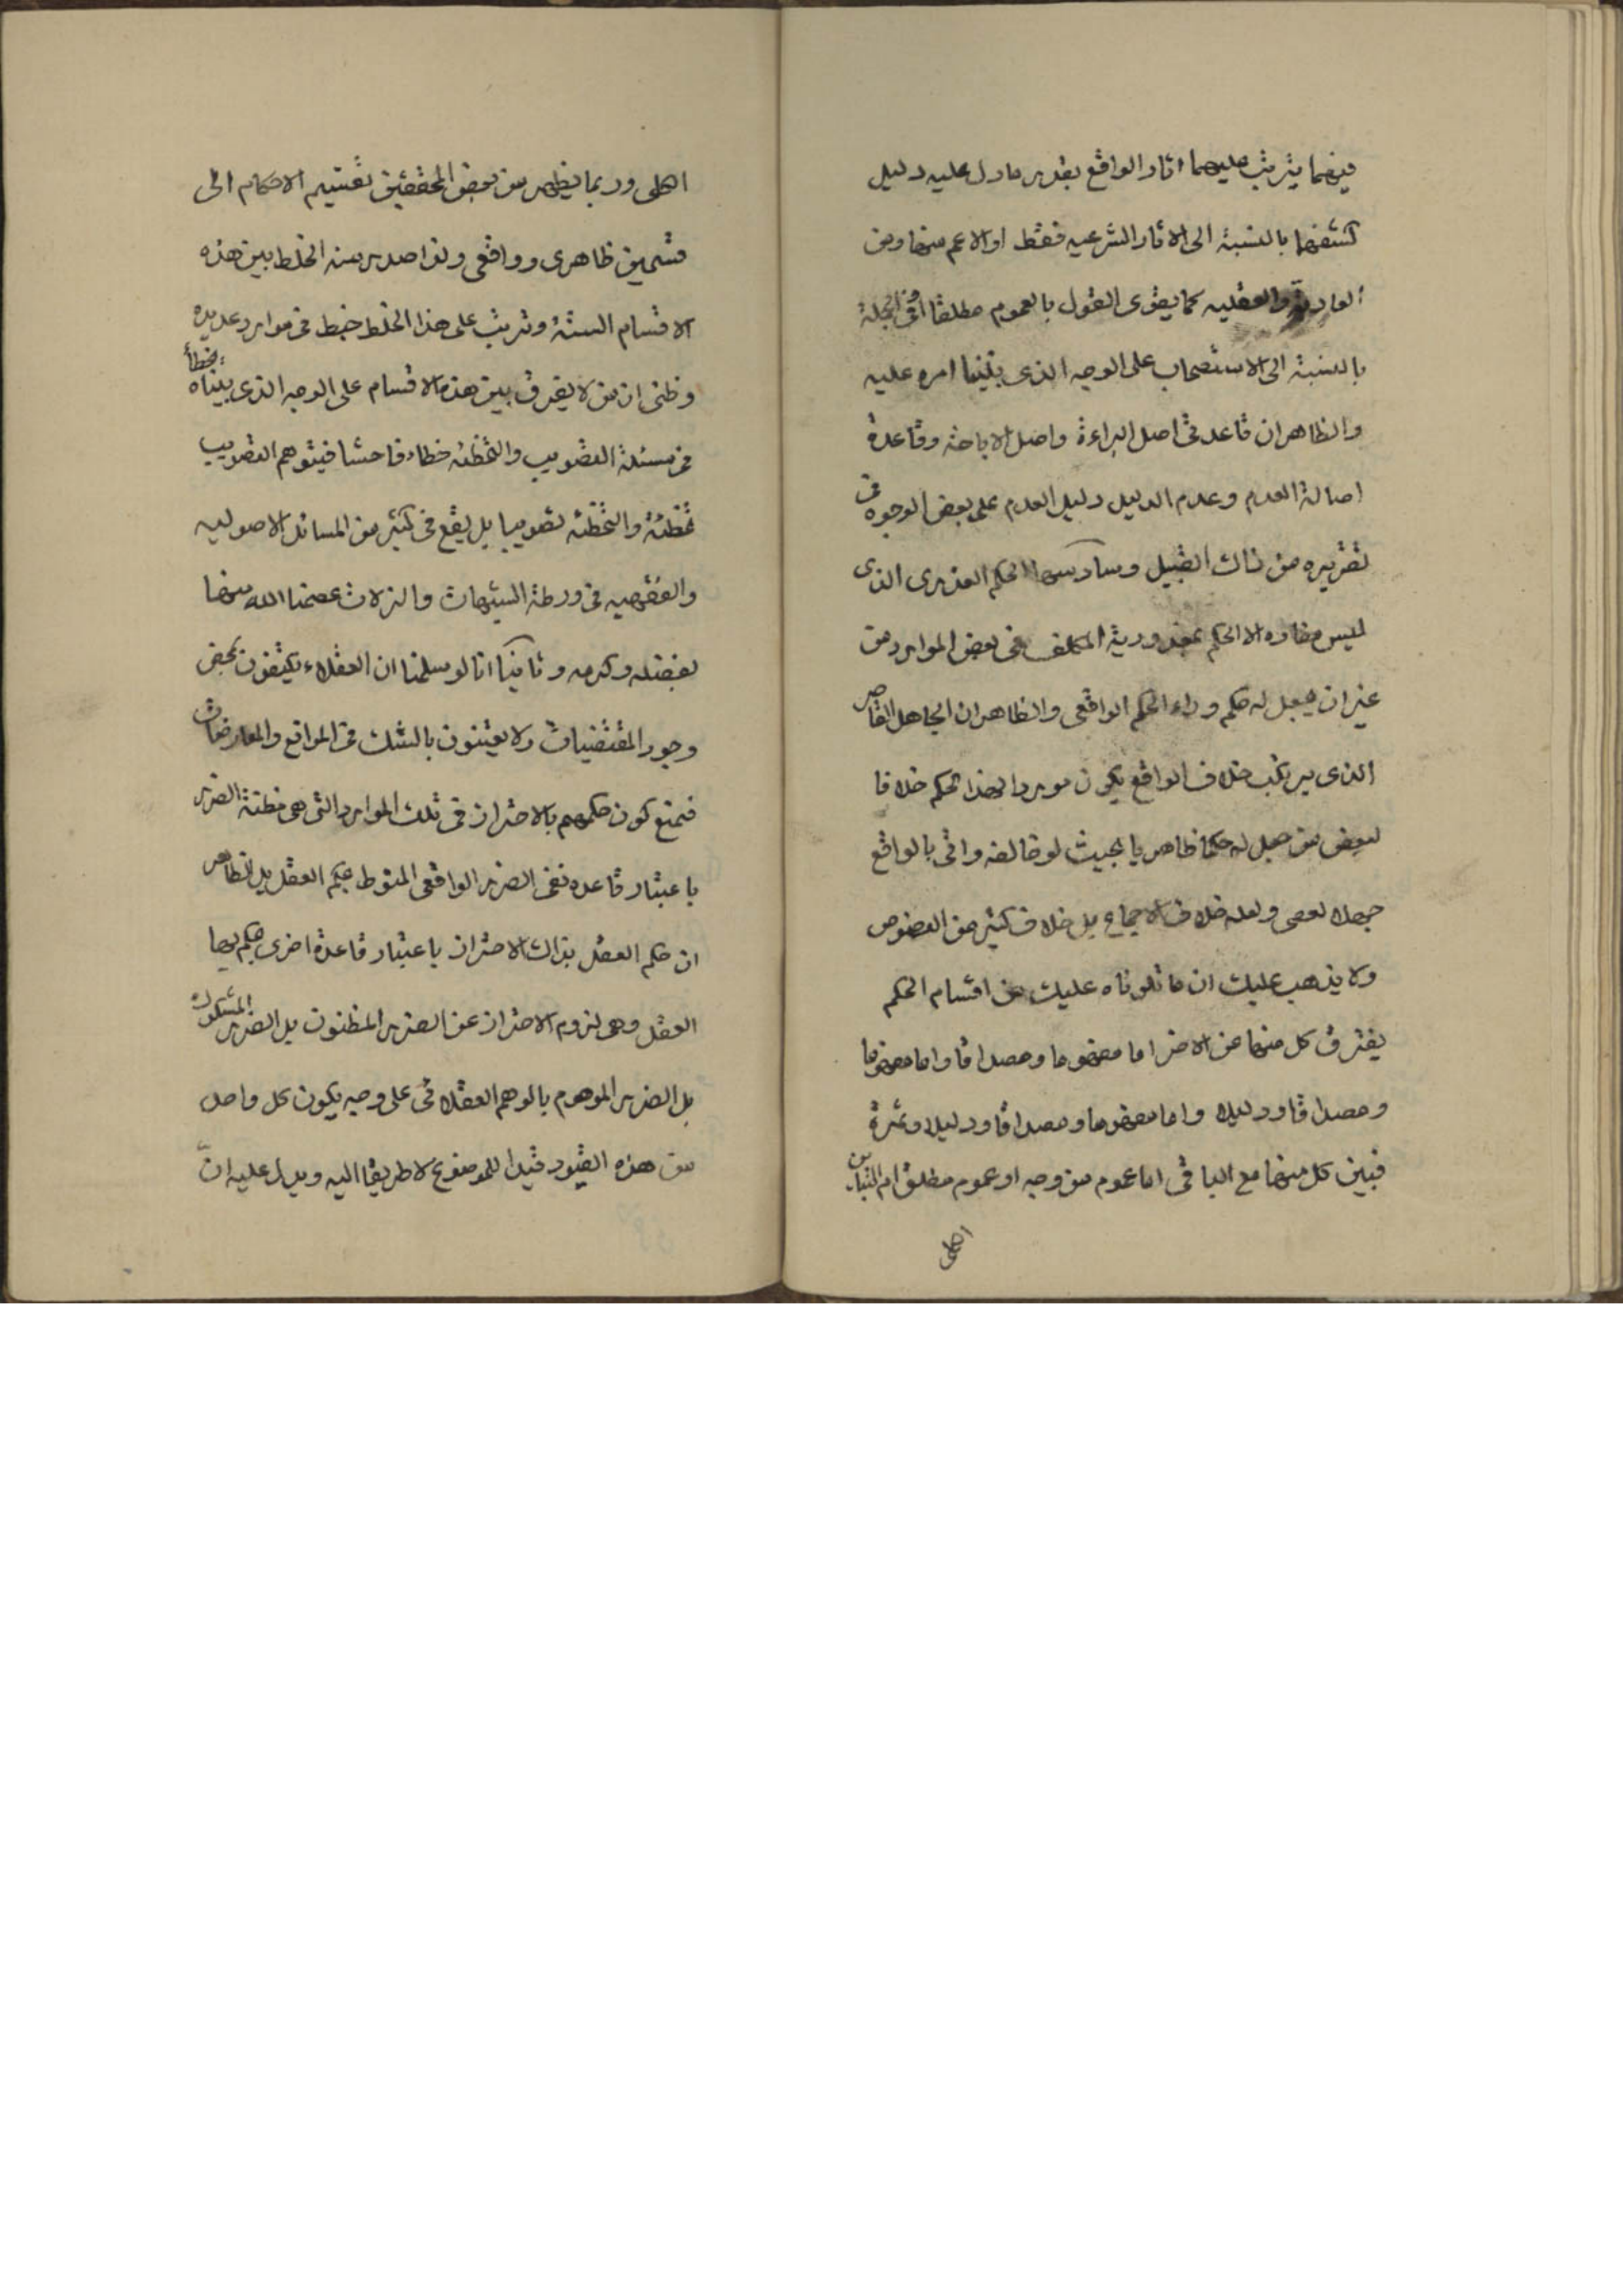 فيهما يترتب عليهما اثار الواقع بقدر ما دل عليه دليل
كشفهما بالنسبة الى الاثار الشرعيه فقط او الاعم منها ومن
العادية والعقليه كما يقوى القول بالعموم مطلقا او فى الجملة
بالنسبة الى الاستصحاب على الوجه الذى بنينا امره عليه
والظاهر ان قاعدتى اصل البراءة واصل الاباحة وقاعدة
اصالة العدم وعدم الدليل دليل العدم على بعض الوجوه فى
تقريره من ذاك القبيل وسادسها الحكم العذرى الذى
ليس مفاده الا الحكم بمعذورية المكلف فى بعض الموارد من
غير ان يجعل له حكم وراء الحكم الواقعى والظاهر ان الجاهل القاصر
الذى يرتكب خلاف الواقع يكون موردا لهذا الحكم خلافا
لبعض من جعل له حكما ظاهريا بحيث لو خالفه واتى بالواقع
جهلا لعصى ولعله خلاف الاجماع بل خلاف كثير من النصوص
ولا يذهب عليك ان ما تلوناه عليك من اقسام الحكم
يفترق كل منها عن الاخر اما مفهوما ومصداقا واما مفهوما
ومصداقا ودليلا واما مفهوما ومصداقا ودليلا وثمرة
فبين كل منها مع الباقى اما عموم من وجه او عموم مطلق ام التباين
اهلى
اهلى وربما يظهر من بعض المحققين تقسيم الاحكام الى
قسمين ظاهرى وواقعى ولذا صدر منه الخلط بين هذه
الاقسام الستة وترتب على هذا الخلط خبط فى موارد عديده
وظنى ان من لا يفرق بين هذه الاقسام على الوجه الذى بيناه يخطأ
فى مسئلة التصويب والتخطئه خطاء فاحشا فيتوهم التصويب
تخطئة والتخطئه تصويبا بل يقع فى كثير من المسائل الاصوليه
والفقهيه فى ورطة الشبهات والزلات عصمنا الله منها
بفضله وكرمه وثانيا انا لو سلمنا ان العقلاء يكتفون بمحض
وجود المقتضيات ولا يعتنون بالشك فى الموانع والمعارضات
فنمنع كون حكمهم بالاحتراز فى تلك الموارد التى هى مظنة الضرر
باعتبار قاعده نفى الضرر الواقعى المنوط بحكم العقل بل الظاهر
ان حكم العقل بذاك الاحتراز باعتبار قاعدة اخرى يحكم بها
العقل وهى لزوم الاحتراز عن الضرر المظنون بل الضرر المشكوك
بل الضرر الموهوم بالوهم العقلائى على وجه يكون كل واحد
من هذه القيود قيدا للموضوع لا طريقا اليه ويدل عليه ان